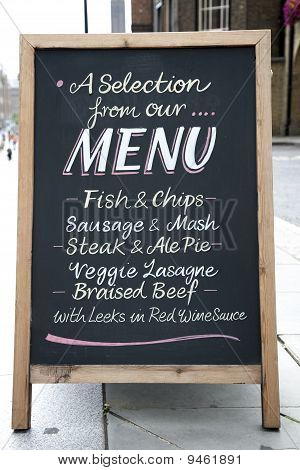 A Selection
from our ....
MENU
Fish & Chips
Sausage & Mash
Steak & Ale Pie
Veggie Lasagne
Braised Beef
with Leeks in Red Wine Sauce
depositphotos
9461891